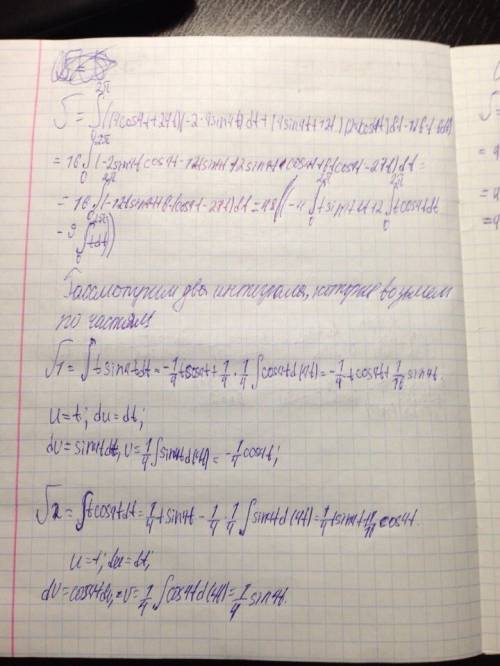 2π
J = ∫ (4cos4t+27t)(-2·4sin4t)dt+(4sin4t+12t)(2·4cos4t)dt-12t·6dt
0 2π
= 16 ∫ (-2sin4t cos4t-12tsin4t+2sin4t·cos4t+6tcos4t-27t)dt=
0 2π 2π 2π
= 16 ∫ (-12tsin4t+6tcos4t-27t)dt=48((-4 ∫ tsin4tdt+2 ∫ tcos4tdt
0 2π 0 0
- 9 ∫ tdt))
0
Рассмотрим два интеграла, которые возьмем
по частям
J1 = ∫ tsin4tdt=-1/4 tcos4t+1/4·1/4 ∫ cos4td(4t)=-1/4 tcos4t+1/16 sin4t.
u=t; du=dt;
dv=sin4tdt, v=1/4 ∫ sin4td(4t)=-1/4 cos4t;
J2 = ∫ tcos4tdt=1/4 tsin4t-1/4·1/4 ∫ sin4td(4t)=1/4 tsin4t+1/16 cos4t.
u=t; du=dt;
dv=cos4tdt, v=1/4 ∫ cos4td(4t)=1/4 sin4t.